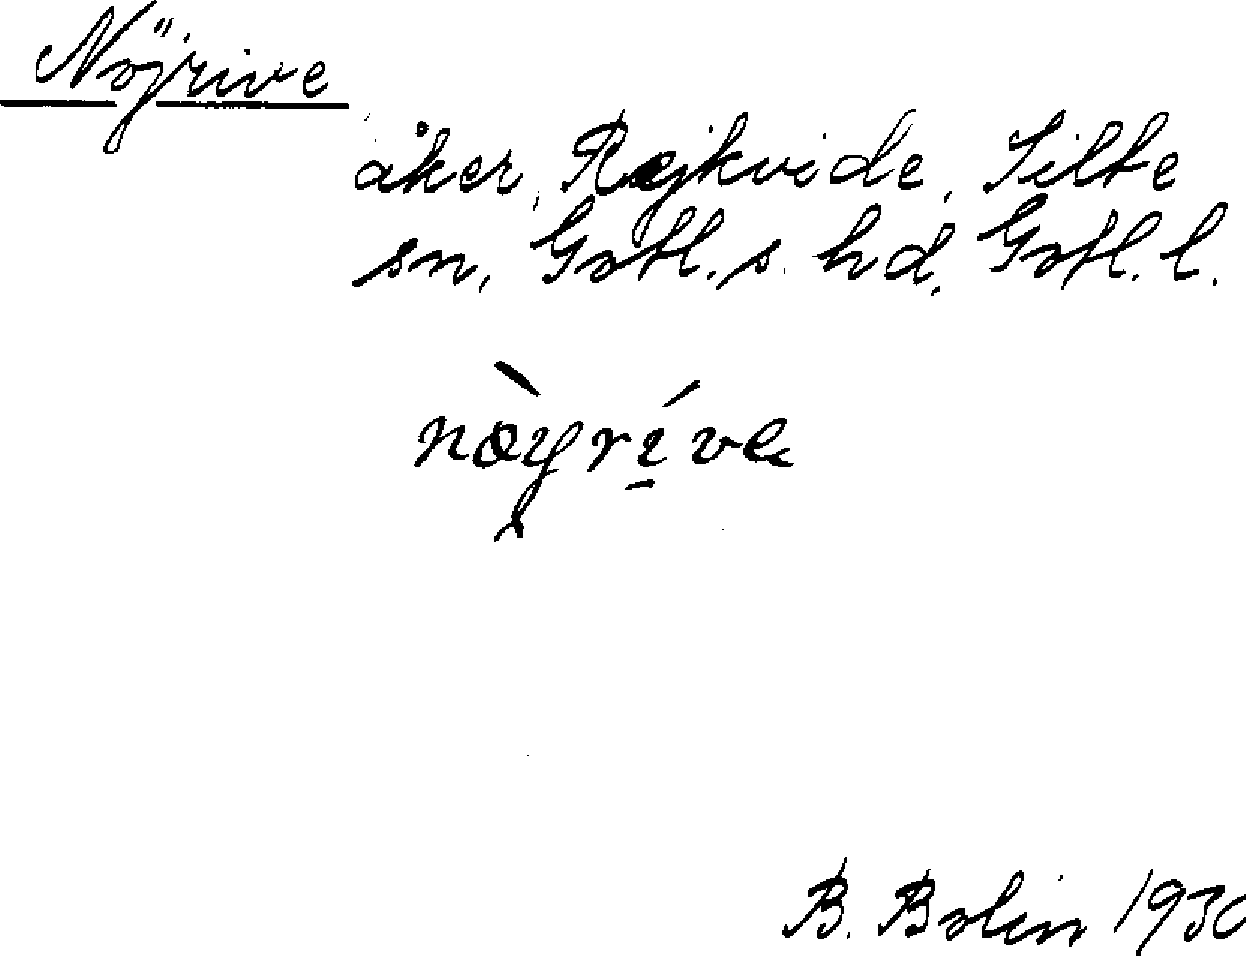 Nöjrive
åker, Rejkvide, Silte
sn, Gotl. s. hd. Gotl. l.
nòyríve
B. Bolin 1930